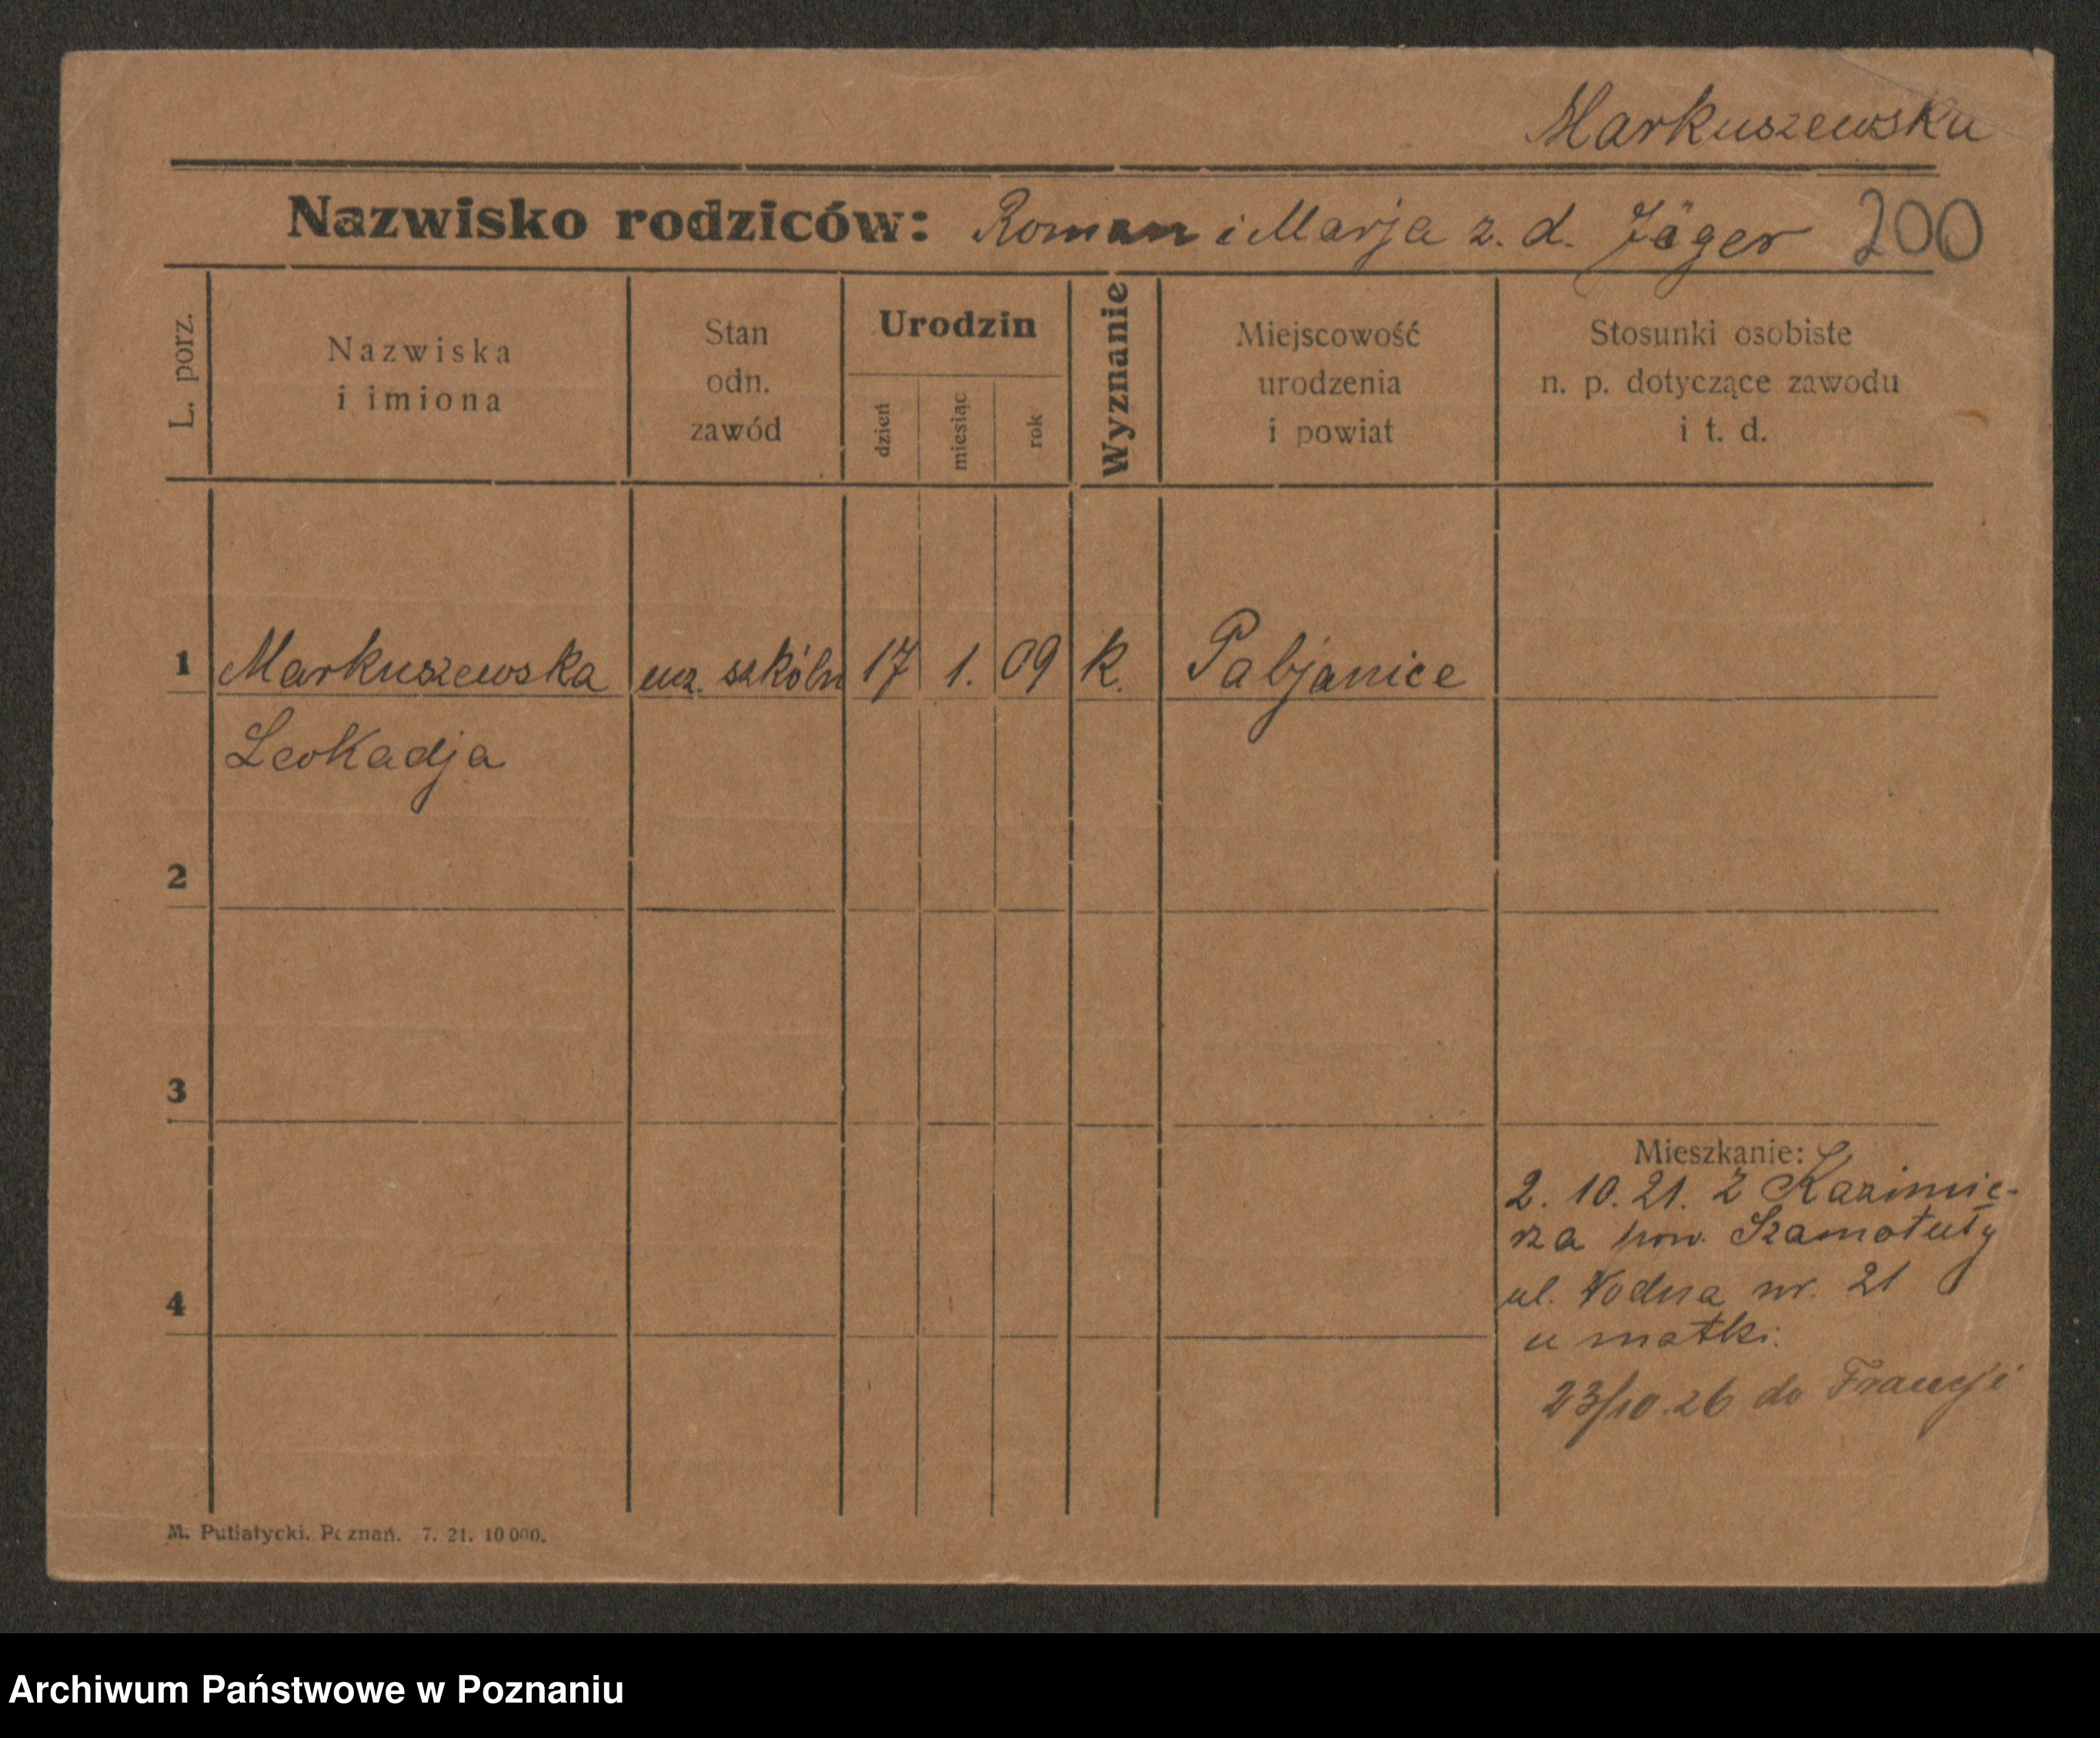 Markuszewska
Nazwisko rodziców: Roman i Marja z. d. Jäger 200
L. porz.
Nazwiska
i imiona
Stan
odn.
zawód
Urodzin
dzień
miesiąc
rok
Wyznanie
Miejscowość
urodzenia
i powiat
Stosunki osobiste
n. p. dotyczące zawodu
i t. d.
1 Markuszewska ucz. szkóln 17 1. 09 k. Pabjanice
Leokadja
2
3
4
Mieszkanie:
2. 10. 21. Z Kazimie-
rza pow. Szamotuły
ul. Wodna nr. 21
u matki.
23/10.26 do Francji
M. Putiatycki. Poznań. 7. 21. 10 000.
Archiwum Państwowe w Poznaniu